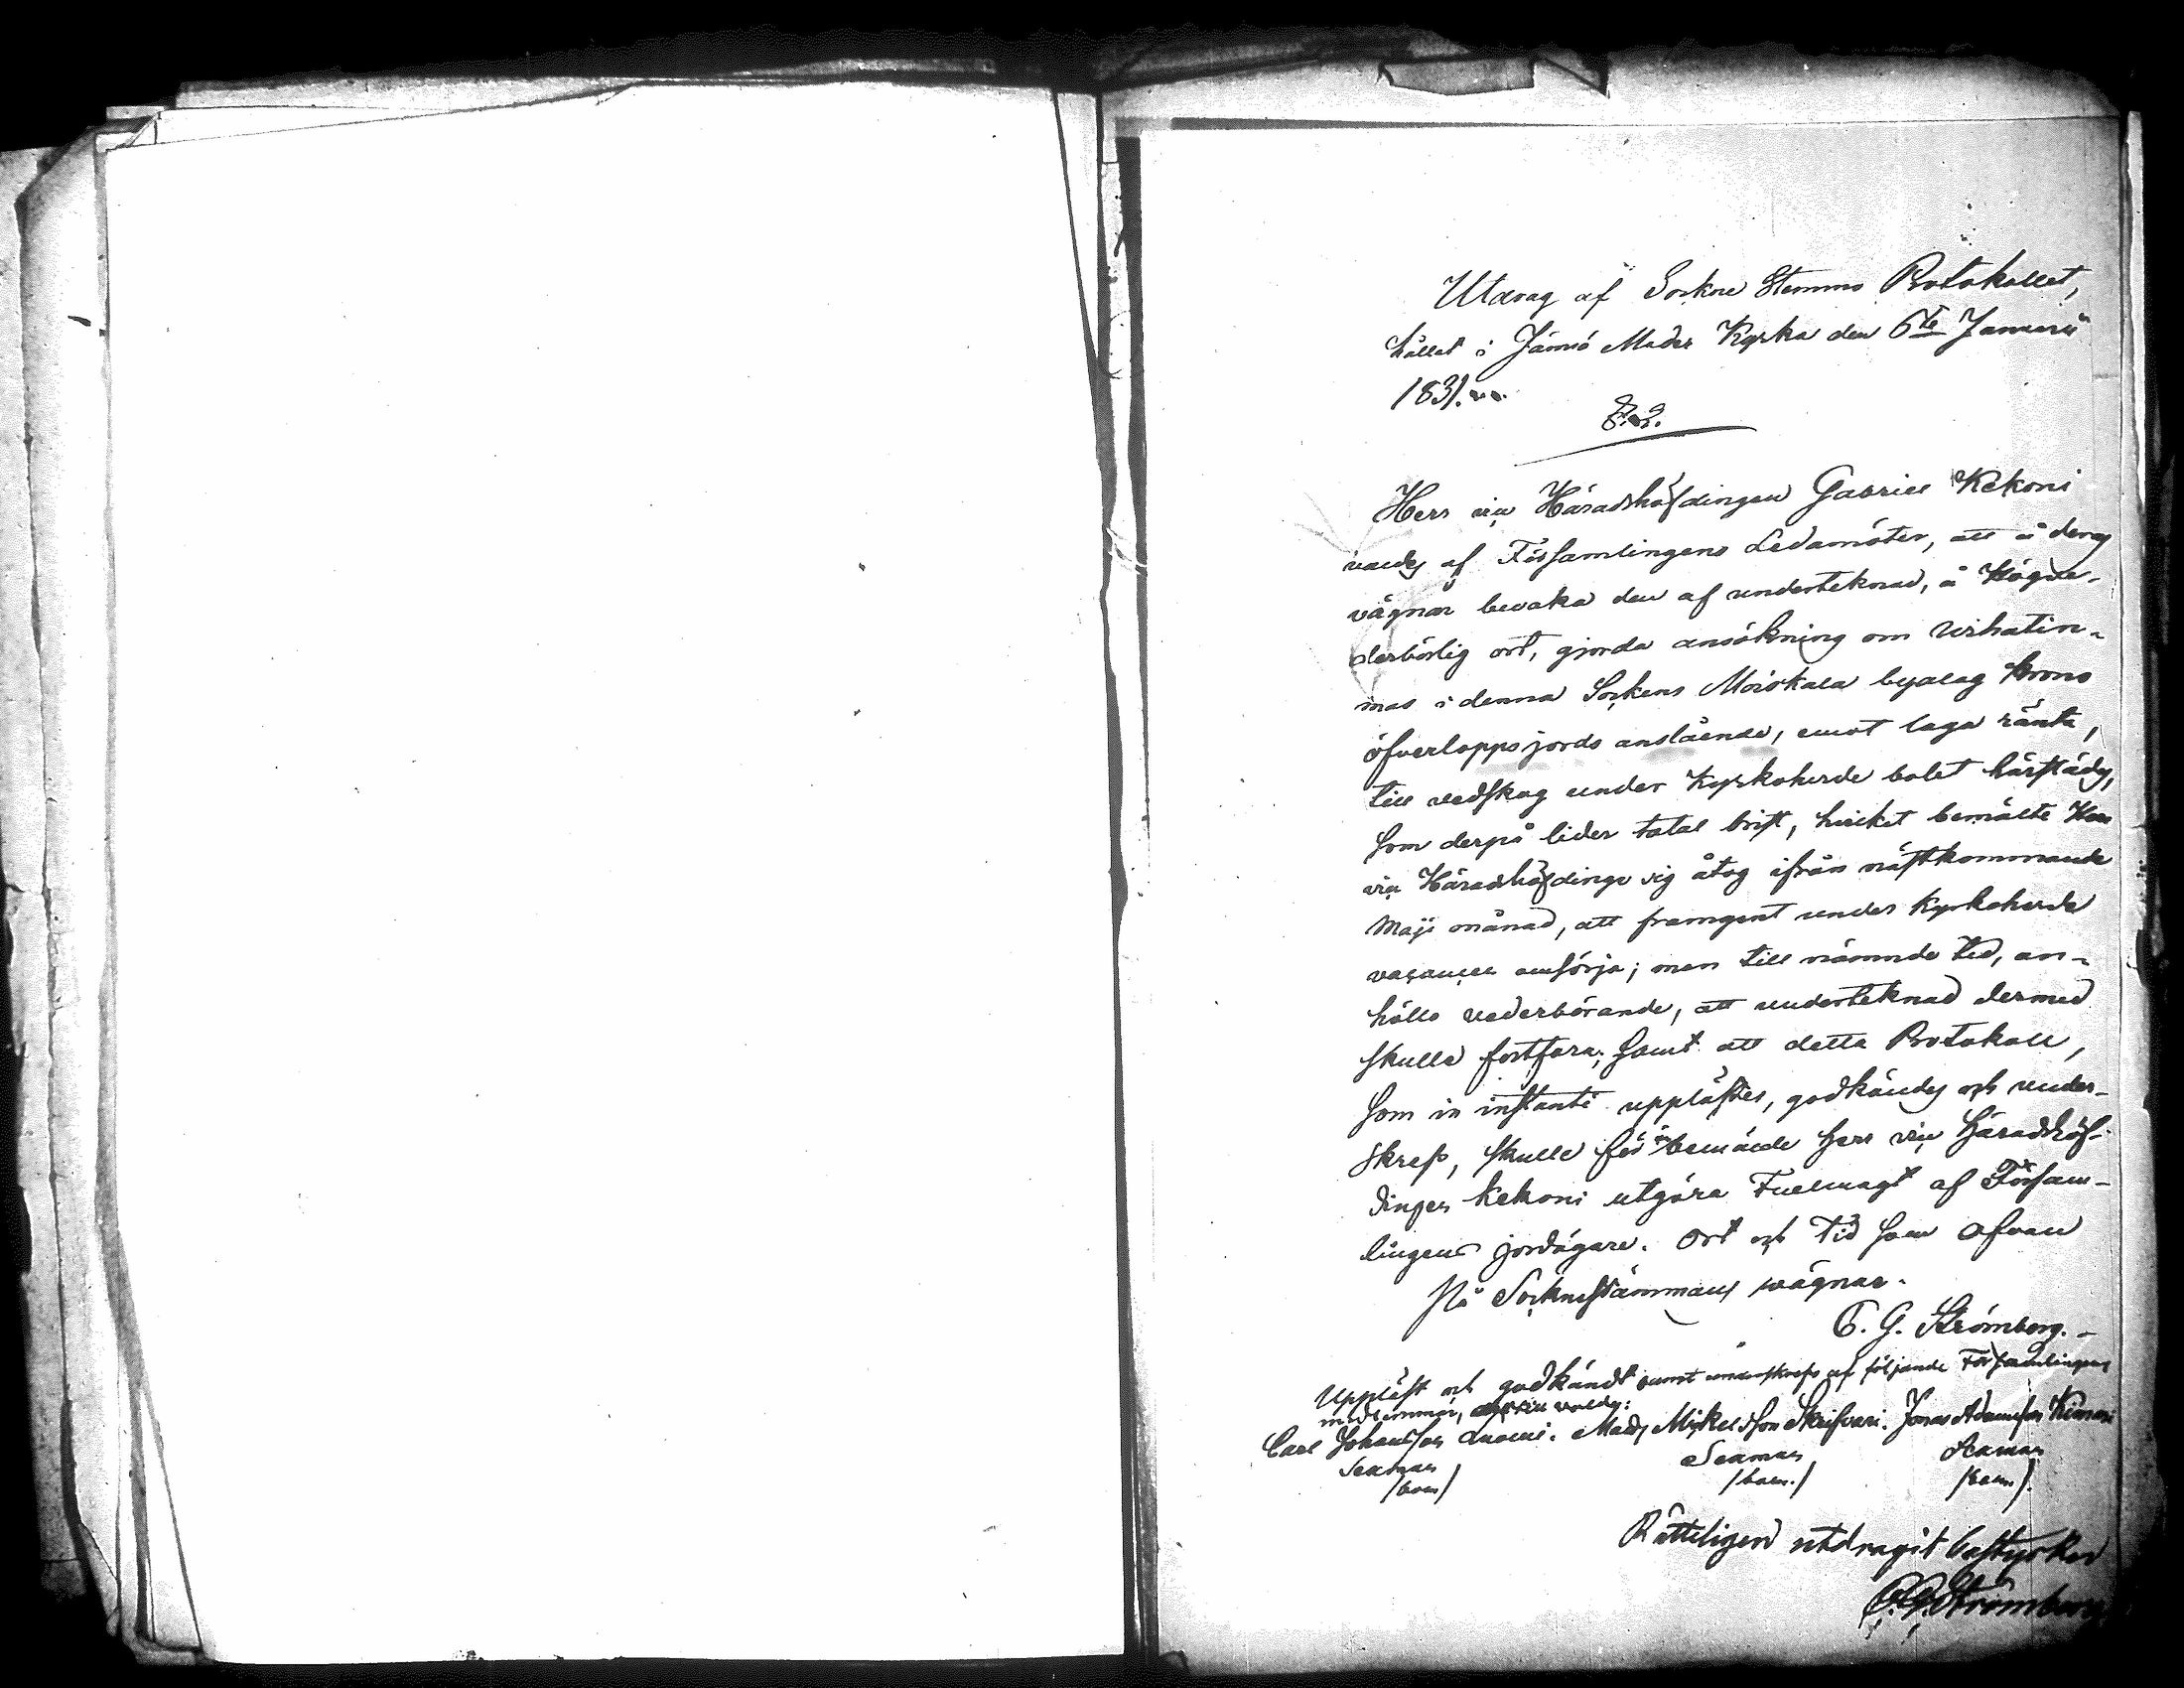 Utdrag af Sockne Stemmo Protokollet,
hållet i Jämsä Moder Kyrka den 6te Januarii
1831.
§. 2.
Herr vice Häradshöfdingen Gabriel Kekoni
valdes af Församlingens Ledamöter, att å deras
vägnar bevaka den af undertecknad, å Högve-
derbörlig ort, gjorda ansökning om
mas i denna Sockens Moiskala byalag Krono
öfverloppsjords anslående, emot laga ränta,
till vedskog under Kyrkoherde bolet härstädes,
som derpå lider total brist, hvilket bemälte Herr
vice Häradshöfdinge sig åtog ifrån nästkommande
Maji månad, att framgent under Kyrkoherde
vacancen omsörja; men till nämnde tid, an-
höllo vederbörande, att undertecknad dermed
skulle fortfara; samt att detta Protokoll,
som in instanti upplästes, godkändes och under-
skrefs, skulle för bemälde Herr vice Häradshöf-
dingen Kekoni utgöra Fullmagt af Försam-
lingens jordägare. Ort och Tid som ofvan
På Socknestämmans wägnar.
C. G. Strömberg.
Uppläst och godkändt samt underskrefs af följande Församlingens
medlemmar, valde:
Carl Johansson Mats Mickelsson Skrifvari. Jonas Adamsson
/bom/ /bom./ /bom/.
Rätteligen utdragit bestyrker
C. G. Strömberg